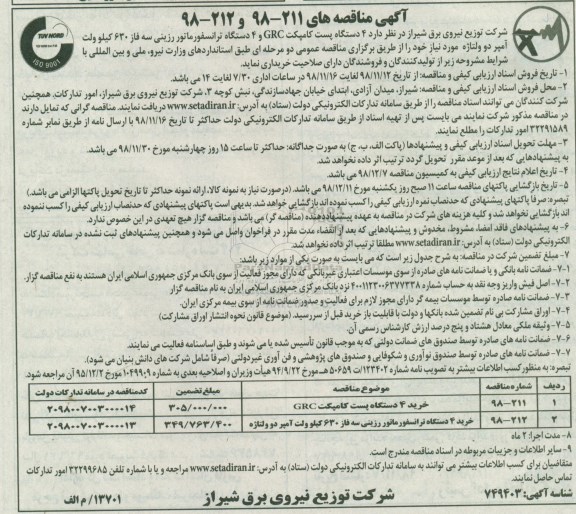 آگهی مناقصه های ۲۱۱-۹۸ و ۲۱۲-۹۸
TUV NORD
ISO 9001
شرکت توزیع نیروی برق شیراز در نظر دارد ۴ دستگاه پست کامپکت GRC و ۴ دستگاه ترانسفورماتور رزینی سه فاز ۶۳۰ کیلو ولت
آمپر دو ولتاژه مورد نیاز خود را از طریق برگزاری مناقصه عمومی دو مرحله ای طبق استانداردهای وزارت نیرو، ملی و بین المللی با
شرایط مشروحه زیر از تولیدکنندگان و فروشندگان دارای صلاحیت خریداری نماید.
۱- تاریخ فروش اسناد ارزیابی کیفی و مناقصه: از تاریخ ۹۸/۱۱/۱۲ لغایت ۹۸/۱۱/۱۶ در ساعات اداری ۷/۳۰ لغایت ۱۴ می باشد.
۲- محل فروش اسناد ارزیابی کیفی و مناقصه: شیراز، میدان آزادی، ابتدای خیابان جهادسازندگی، نبش کوچه ۳، شرکت توزیع نیروی برق شیراز، امور تدارکات. همچنین
شرکت کنندگان می توانند اسناد مناقصه را از طریق سامانه تدارکات الکترونیکی دولت (ستاد) به آدرس: www.setadiran.ir دریافت نمایند. مناقصه گرانی که تمایل دارند
در مناقصه مذکور شرکت نمایند می بایست پس از تهیه اسناد از طریق سامانه تدارکات الکترونیکی دولت حداکثر تا تاریخ ۹۸/۱۱/۱۶ با ارسال نامه از طریق نمابر شماره
۳۲۲۹۱۵۸۹ امور تدارکات را مطلع نمایند.
۳- مهلت تحویل اسناد ارزیابی کیفی و پیشنهادها (پاکت الف، ب، ج) به صورت جداگانه: حداکثر تا ساعت ۱۵ روز چهارشنبه مورخ ۹۸/۱۱/۳۰ می باشد.
به پیشنهادهایی که بعد از موعد مقرر تحویل گردد ترتیب اثر داده نخواهد شد.
۴- تاریخ اعلام نتایج ارزیابی کیفی به کمیسیون مناقصه ۹۸/۱۲/۷ می باشد.
۵- تاریخ بازگشایی پاکتهای مناقصه ساعت ۱۱ صبح روز یکشنبه مورخ ۹۸/۱۲/۱۱ می باشد. (درصورت نیاز به نمونه کالا، ارائه نمونه حداکثر تا تاریخ تحویل پاکتها الزامی می باشد.)
تبصره: صرفا پاکتهای پیشنهادی که حدنصاب نمره ارزیابی کیفی را کسب نموده اند بازگشایی خواهد شد. بدیهی است پاکتهای پیشنهادی که حدنصاب ارزیابی کیفی را کسب ننموده
اند بازگشایی نخواهد شد و کلیه هزینه های شرکت در مناقصه به عهده پیشنهاددهنده (مناقصه گر) می باشد و مناقصه گزار هیچ تعهدی در این خصوص ندارد.
۶- به پیشنهادهای فاقد امضا، مشروط، مخدوش و پیشنهادهایی که بعد از انقضاء مدت مقرر در فراخوان واصل می شود و همچنین پیشنهادهای ثبت نشده در سامانه تدارکات
الکترونیکی دولت (ستاد) به آدرس: www.setadiran.ir مطلقا ترتیب اثر داده نخواهد شد.
۷- مبلغ تضمین شرکت در مناقصه: به شرح جدول زیر است که می بایست به صورت یکی از موارد زیر باشد:
۷-۱- ضمانت نامه بانکی و یا ضمانت نامه های صادره از سوی موسسات اعتباری غیربانکی که دارای مجوز فعالیت از سوی بانک مرکزی جمهوری اسلامی ایران هستند به نفع مناقصه گزار.
۷-۲- اصل فیش واریز وجه نقد به حساب شماره ۴۰۰۱۱۲۳۰۰۶۳۷۷۳۳۸ نزد بانک مرکزی جمهوری اسلامی ایران به نام مناقصه گزار
۷-۳- ضمانت نامه صادره توسط موسسات بیمه گر دارای مجوز لازم برای فعالیت و صدور ضمانت نامه از سوی بیمه مرکزی ایران.
۷-۴- اوراق مشارکت بی نام تضمین شده بانکها و دولت با قابلیت باز خرید قبل از سررسید. (موضوع قانون نحوه انتشار اوراق مشارکت)
۷-۵- وثیقه ملکی معادل هشتاد و پنج درصد ارزش کارشناس رسمی آن.
۷-۶- ضمانت نامه های صادره توسط صندوق های ضمانت دولتی که به موجب قانون تأسیس شده یا می شوند و طبق اساسنامه فعالیت می نمایند.
۷-۷- ضمانت نامه های صادره توسط صندوق نوآوری و شکوفایی و صندوق های پژوهشی و فن آوری غیردولتی (صرفا شامل شرکت های دانش بنیان می شود).
تبصره: به منظور کسب اطلاعات بیشتر به تصویب نامه شماره ۱۲۳۴۰۲/ت ۵۰۶۵۹ هـ مورخ ۹۴/۹/۲۲ هیأت وزیران و اصلاحیه بعدی به شماره ۱۰۴۹۹۰۹ مورخ ۹۵/۱۲/۲ آن مراجعه شود.
ردیف شماره مناقصه موضوع مناقصه مبلغ تضمین کدمناقصه در سامانه تدارکات دولت
۱ ۹۸-۲۱۱ خرید ۴ دستگاه پست کامپکت GRC ۳۰۵/۰۰۰/۰۰۰ ۲۰۹۸۰۰۷۰۰۳۰۰۰۰۱۴
۲ ۹۸-۲۱۲ خرید ۴ دستگاه ترانسفورماتور رزینی سه فاز ۶۳۰ کیلو ولت آمپر دو ولتاژه ۳۴۹/۷۶۳/۴۰۰ ۲۰۹۸۰۰۷۰۰۳۰۰۰۰۱۳
۸- مدت اجرا: ۲ ماه
۹- سایر اطلاعات و جزییات مربوطه در اسناد مناقصه مندرج است.
متقاضیان برای کسب اطلاعات بیشتر می توانند به سامانه تدارکات الکترونیکی دولت (ستاد) به آدرس: www.setadiran.ir مراجعه و یا با شماره تلفن ۳۲۲۹۹۶۸۵ امور تدارکات
تماس حاصل نمایند.
شناسه آگهی: ۷۴۹۴۰۳
شرکت توزیع نیروی برق شیراز
۱۳۷۰۱/م الف